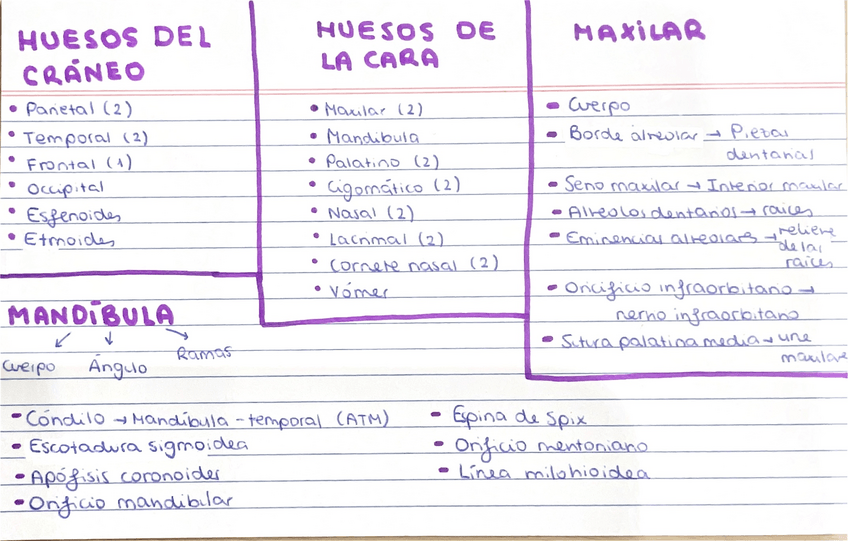 HUESOS DEL
CRÁNEO
• Parietal (2)
• Temporal (2)
• Frontal (1)
• Occipital
• Esfenoides
• Etmoides
HUESOS DE
LA CARA
• Maxilar (2)
• Mandíbula
• Palatino (2)
• Cigomático (2)
• Nasal (2)
• Lacrimal (2)
• Cornete nasal (2)
• Vómer
MAXILAR
- Cuerpo
- Borde alveolar → Piezas
dentarias
- Seno maxilar → Interior maxilar
- Alveolos dentarios → raíces
- Eminencias alveolares → relieve
de las
raíces
- Orificio infraorbitano →
nervio infraorbitano
- Sutura palatina media → une
maxilares
MANDÍBULA
Cuerpo Ángulo Ramas
- Cóndilo → Mandíbula - temporal (ATM)
- Escotadura sigmoidea
- Apófisis coronoides
- Orificio mandibilar
- Espina de Spix
- Orificio mentoniano
- Línea milohioidea